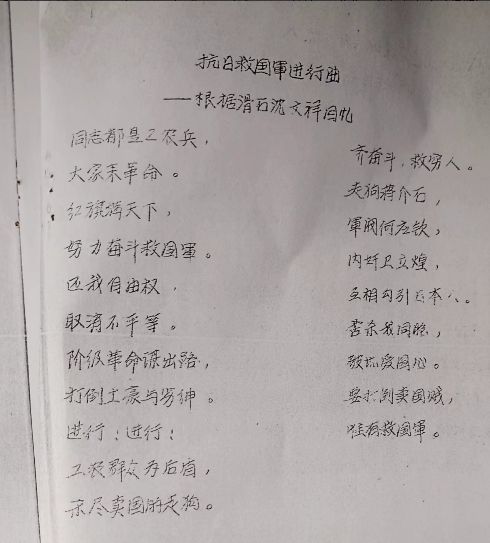 抗日救国軍进行曲
——根据滑石沈文祥回忆
同志都是工农兵，
大家来革命。
红旗满天下，
努力奋斗救国軍。
还我自由权，
取消不平等。
阶级革命谋出路，
打倒土豪与劣绅。
进行！进行！
工农群众为后盾，
杀尽卖国的走狗。
齐奋斗，救穷人。
走狗蒋介石，
軍阀何应钦，
内奸卫立煌，
互相勾引日本人。
害杀我同胞，
破坏爱国心。
要打倒卖国贼，
唯有救国軍。